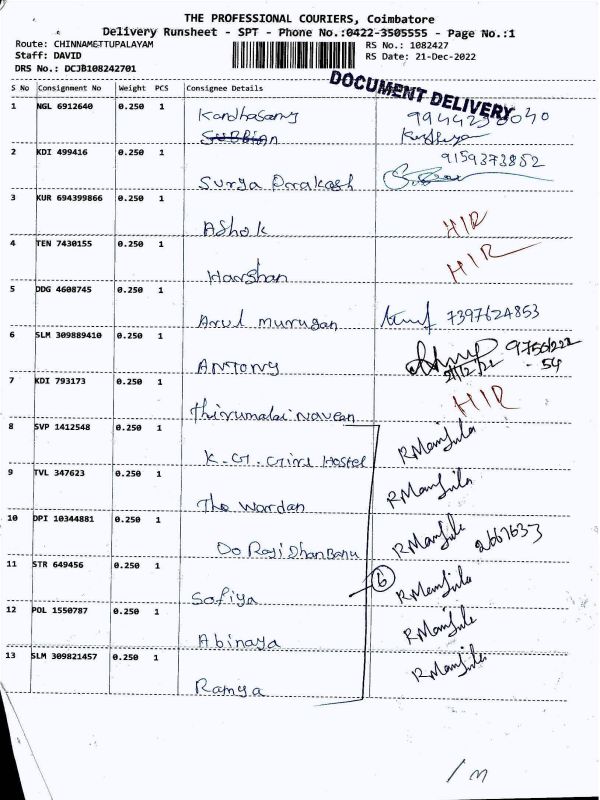 THE PROFESSIONAL COURIERS, Coimbatore
Delivery Runsheet - SPT - Phone No.:0422-3505555 - Page No.:1
Route: CHINNAMETTUPALAYAM RS No.: 1082427
Staff: DAVID RS Date: 21-Dec-2022
DRS No.: DCJB108242701
DOCUMENT DELIVERY
S No Consignment No Weight PCS Consignee Details
1 NGL 6912640 0.250 1 Kandhasamy
2 KDI 499416 0.250 1 9159373852
Surya Prakash
3 KUR 694399866 0.250 1
Ashok HIR
4 TEN 7430155 0.250 1
Harishan HIR
5 DDG 4608745 0.250 1
Arul murugan 7397624853
6 SLM 309889410 0.250 1
ANTONY 21/12/22
7 KDI 793173 0.250 1
Thirumalai Naveen HIR
8 SVP 1412548 0.250 1
K.G. Girls Hostel R Manjula
9 TVL 347623 0.250 1
The Wardan R Manjula
10 DPI 10344881 0.250 1
R Manjula 2667637
11 STR 649456 0.250 1
Sofiya 6 R Manjula
12 POL 1550787 0.250 1
Abinaya R Manjula
13 SLM 309821457 0.250 1
Ramya R Manjula